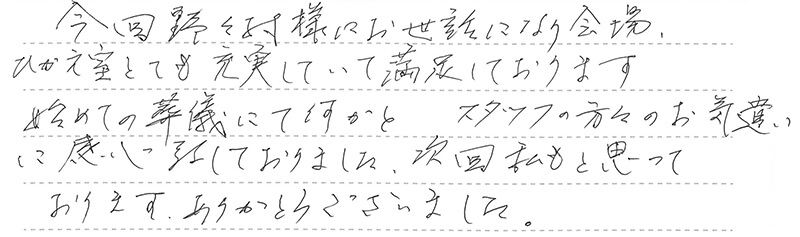 今回野々村様にお世話になり会場、
ひかえ室とても充実していて満足しております
始めての葬儀にて何かと スタッフの方々のお気遣い
に感心致しておりました、次回私もと思って
おります、ありがとうございました。